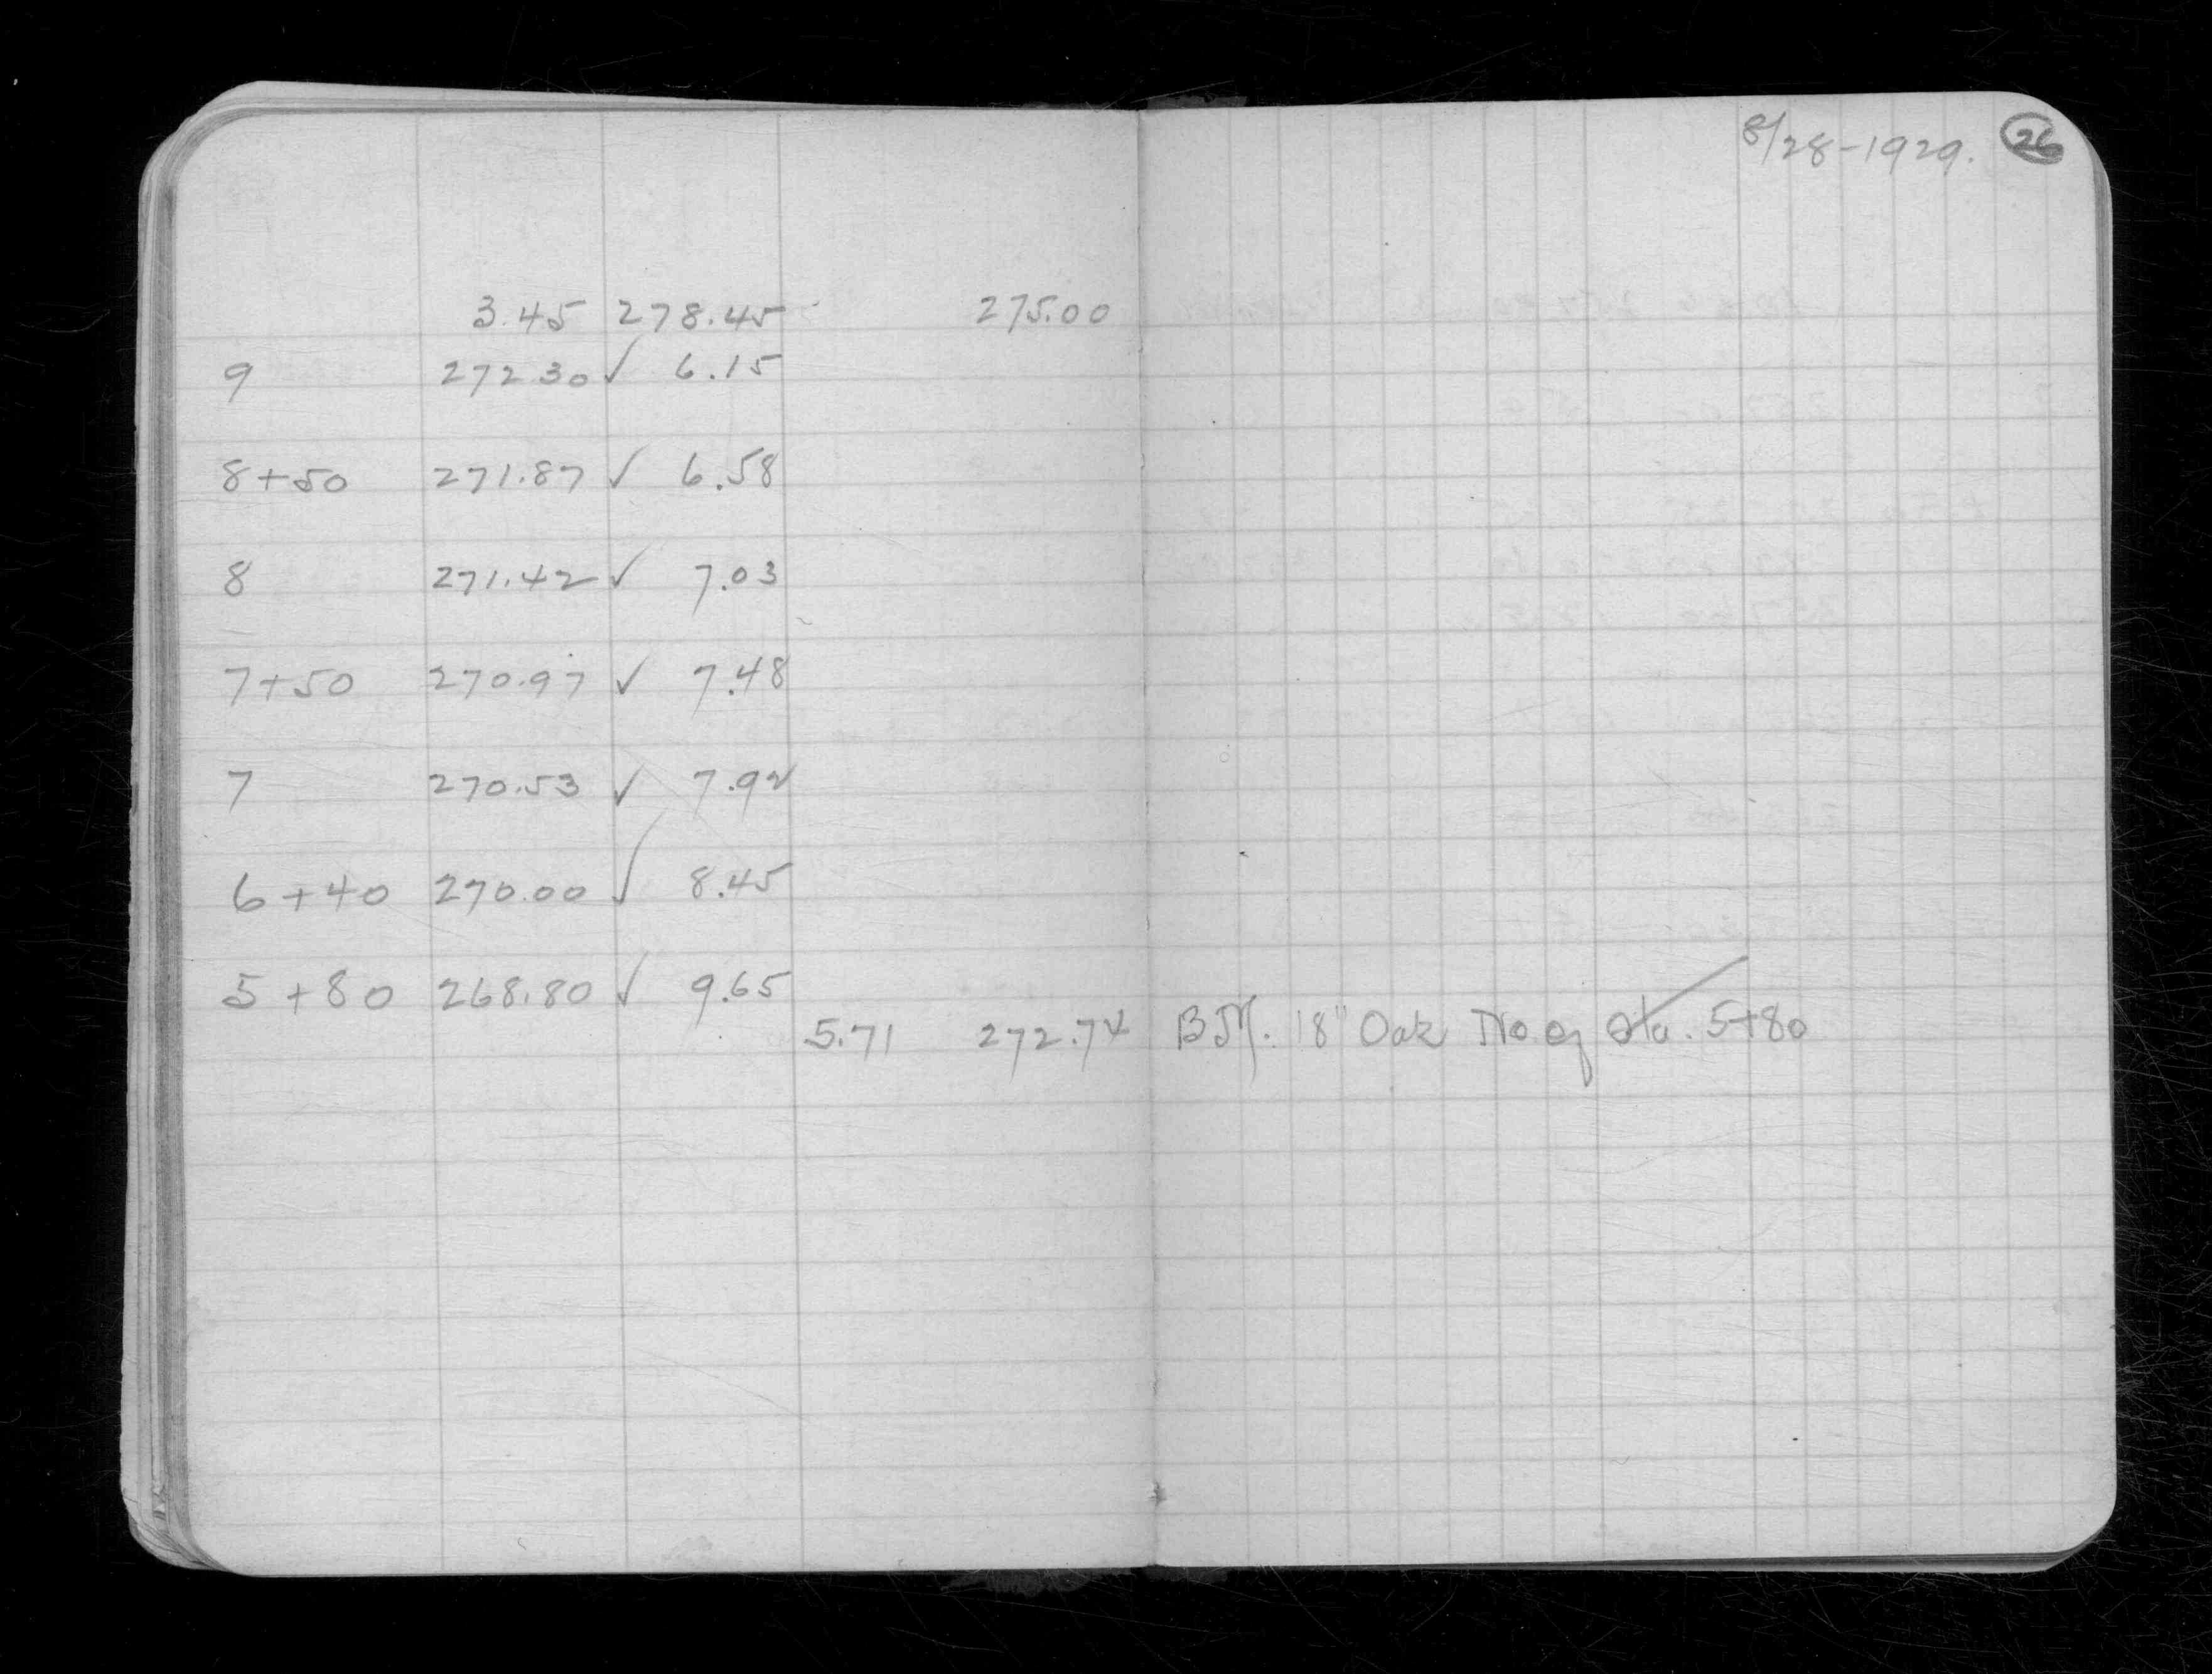 8/28-1929. 26
3.45 278.45 275.00
9 272.30 ✓ 6.15
8+50 271.87 ✓ 6.58
8 271.42 ✓ 7.03
7+50 270.97 ✓ 7.48
7 270.53 ✓ 7.92
6+40 270.00 ✓ 8.45
5+80 268.80 ✓ 9.65
5.71 272.74 B.M. 18" Oak No. of Sta. 5+80